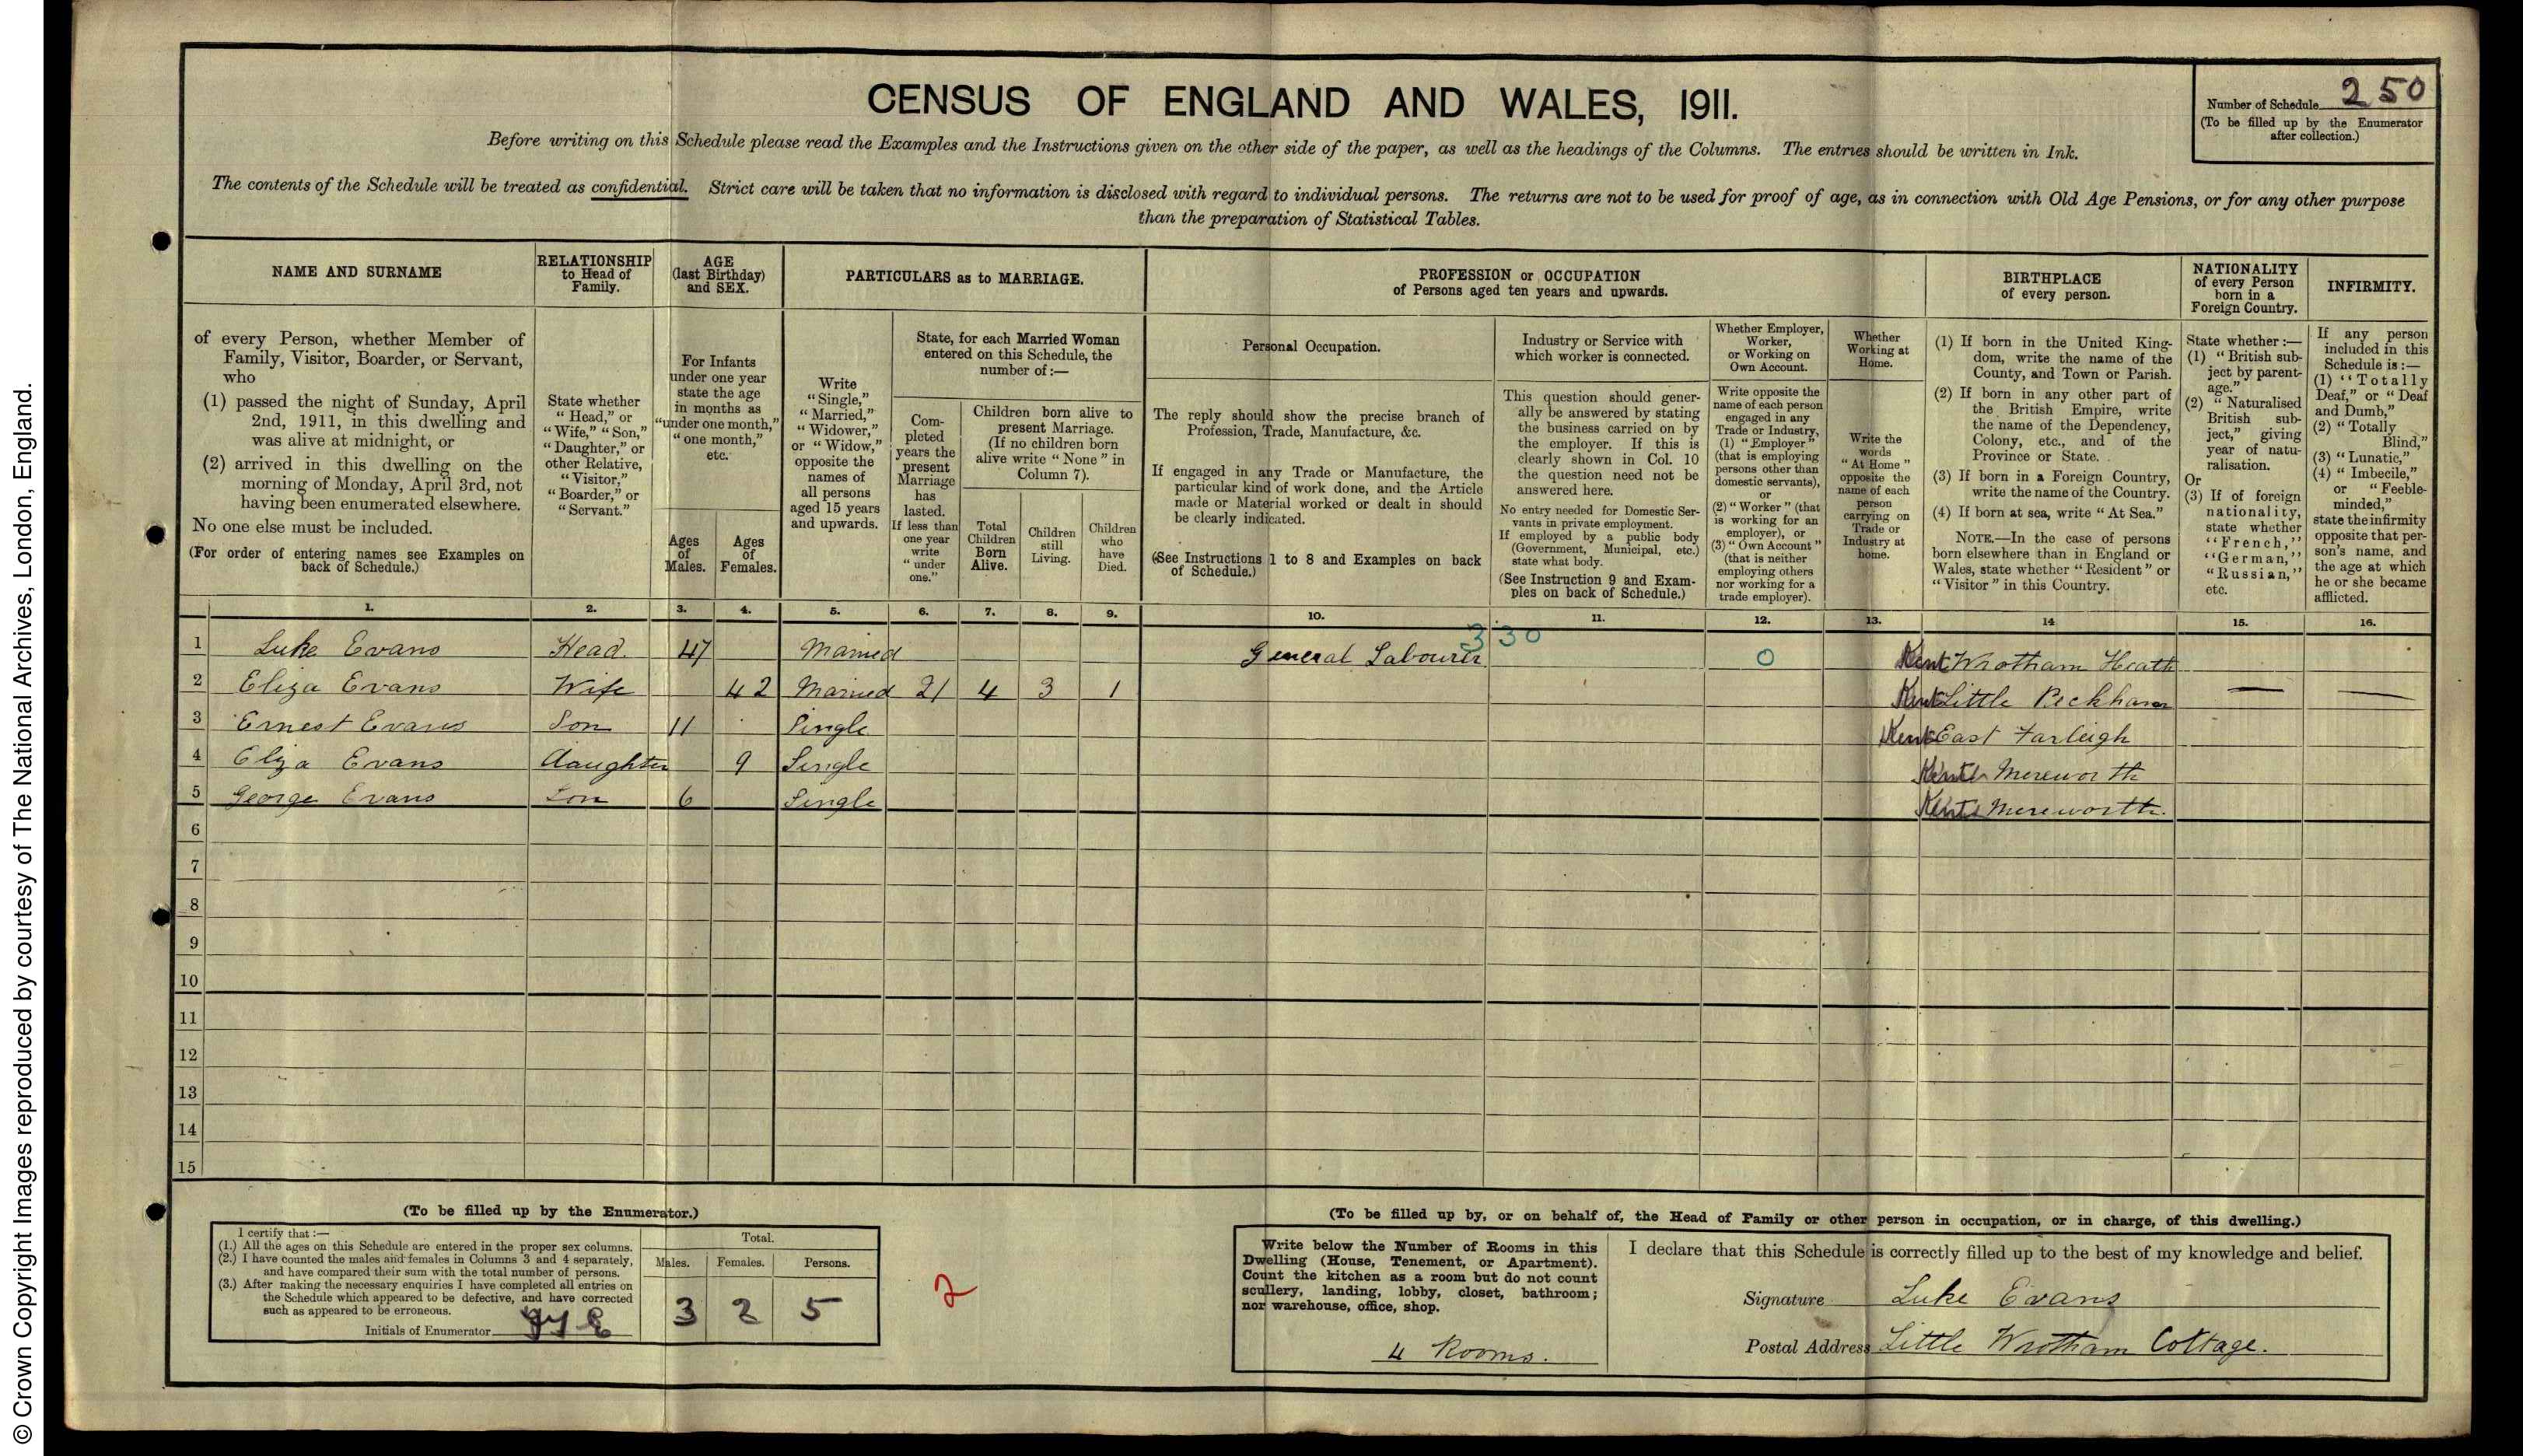 © Crown Copyright Images reproduced by courtesy of The National Archives, London, England.
CENSUS OF ENGLAND AND WALES, 1911.
Number of Schedule 250
(To be filled up by the Enumerator
after collection.)
Before writing on this Schedule please read the Examples and the Instructions given on the other side of the paper, as well as the headings of the Columns. The entries should be written in Ink.
The contents of the Schedule will be treated as confidential. Strict care will be taken that no information is disclosed with regard to individual persons. The returns are not to be used for proof of age, as in connection with Old Age Pensions, or for any other purpose
than the preparation of Statistical Tables.
NAME AND SURNAME
of every Person, whether Member of
Family, Visitor, Boarder, or Servant,
who
(1) passed the night of Sunday, April
2nd, 1911, in this dwelling and
was alive at midnight, or
(2) arrived in this dwelling on the
morning of Monday, April 3rd, not
having been enumerated elsewhere.
No one else must be included.
(For order of entering names see Examples on
back of Schedule.)
RELATIONSHIP
to Head of
Family.
State whether
"Head," or
"Wife," "Son,"
"Daughter," or
other Relative,
"Visitor,"
"Boarder," or
"Servant."
AGE
(last Birthday)
and SEX.
For Infants
under one year
state the age
in months as
"under one month,"
"one month,"
etc.
Ages
of
Males.
Ages
of
Females.
PARTICULARS as to MARRIAGE.
Write
"Single,"
"Married,"
"Widower,"
or "Widow,"
opposite the
names of
all persons
aged 15 years
and upwards.
State, for each Married Woman
entered on this Schedule, the
number of:—
Com-
pleted
years the
present
Marriage
has
lasted.
If less than
one year
write
"under
one."
Children born alive to
present Marriage.
(If no children born
alive write "None" in
Column 7).
Total
Children
Born
Alive.
Children
still
Living.
Children
who
have
Died.
PROFESSION or OCCUPATION
of Persons aged ten years and upwards.
Personal Occupation.
The reply should show the precise branch of
Profession, Trade, Manufacture, &c.
If engaged in any Trade or Manufacture, the
particular kind of work done, and the Article
made or Material worked or dealt in should
be clearly indicated.
(See Instructions 1 to 8 and Examples on back
of Schedule.)
Industry or Service with
which worker is connected.
This question should gener-
ally be answered by stating
the business carried on by
the employer. If this is
clearly shown in Col. 10
the question need not be
answered here.
No entry needed for Domestic Ser-
vants in private employment.
If employed by a public body
(Government, Municipal, etc.)
state what body.
(See Instruction 9 and Exam-
ples on back of Schedule.)
Whether Employer,
Worker,
or Working on
Own Account.
Write opposite the
name of each person
engaged in any
Trade or Industry,
(1) "Employer"
(that is employing
persons other than
domestic servants),
or
(2) "Worker" (that
is working for an
employer), or
(3) "Own Account"
(that is neither
employing others
nor working for a
trade employer).
Whether
Working at
Home.
Write the
words
"At Home"
opposite the
name of each
person
carrying on
Trade or
Industry at
home.
BIRTHPLACE
of every person.
(1) If born in the United King-
dom, write the name of the
County, and Town or Parish.
(2) If born in any other part of
the British Empire, write
the name of the Dependency,
Colony, etc., and of the
Province or State.
(3) If born in a Foreign Country,
write the name of the Country.
(4) If born at sea, write "At Sea."
NOTE.—In the case of persons
born elsewhere than in England or
Wales, state whether "Resident" or
"Visitor" in this Country.
NATIONALITY
of every Person
born in a
Foreign Country.
State whether:—
(1) "British sub-
ject by parent-
age."
(2) "Naturalised
British sub-
ject," giving
year of natu-
ralisation.
Or
(3) If of foreign
nationality,
state whether
"French,"
"German,"
"Russian,"
etc.
INFIRMITY.
If any person
included in this
Schedule is:—
(1) "Totally
Deaf," or "Deaf
and Dumb,"
(2) "Totally
Blind,"
(3) "Lunatic,"
(4) "Imbecile,"
or "Feeble-
minded,"
state the infirmity
opposite that per-
son's name, and
the age at which
he or she became
afflicted.
1. 2. 3. 4. 5. 6. 7. 8. 9. 10. 11. 12. 13. 14 15. 16.
1 Luke Evans Head 47 Married General Labourer 330 0 Kent Wrotham Heath
2 Eliza Evans Wife 42 Married 21 4 3 1 Kent Little Peckham — —
3 Ernest Evans Son 11 Single Kent East Farleigh
4 Eliza Evans daughter 9 Single Kent Mereworth
5 George Evans Son 6 Single Kent Mereworth.
6
7
8
9
10
11
12
13
14
15
(To be filled up by the Enumerator.)
I certify that:—
(1.) All the ages on this Schedule are entered in the proper sex columns.
(2.) I have counted the males and females in Columns 3 and 4 separately,
and have compared their sum with the total number of persons.
(3.) After making the necessary enquiries I have completed all entries on
the Schedule which appeared to be defective, and have corrected
such as appeared to be erroneous.
Initials of Enumerator
Total.
Males. Females. Persons.
3 2 5
2
(To be filled up by, or on behalf of, the Head of Family or other person in occupation, or in charge, of this dwelling.)
Write below the Number of Rooms in this
Dwelling (House, Tenement, or Apartment).
Count the kitchen as a room but do not count
scullery, landing, lobby, closet, bathroom;
nor warehouse, office, shop.
4 Rooms.
I declare that this Schedule is correctly filled up to the best of my knowledge and belief.
Signature Luke Evans
Postal Address Little Wrotham Cottage.